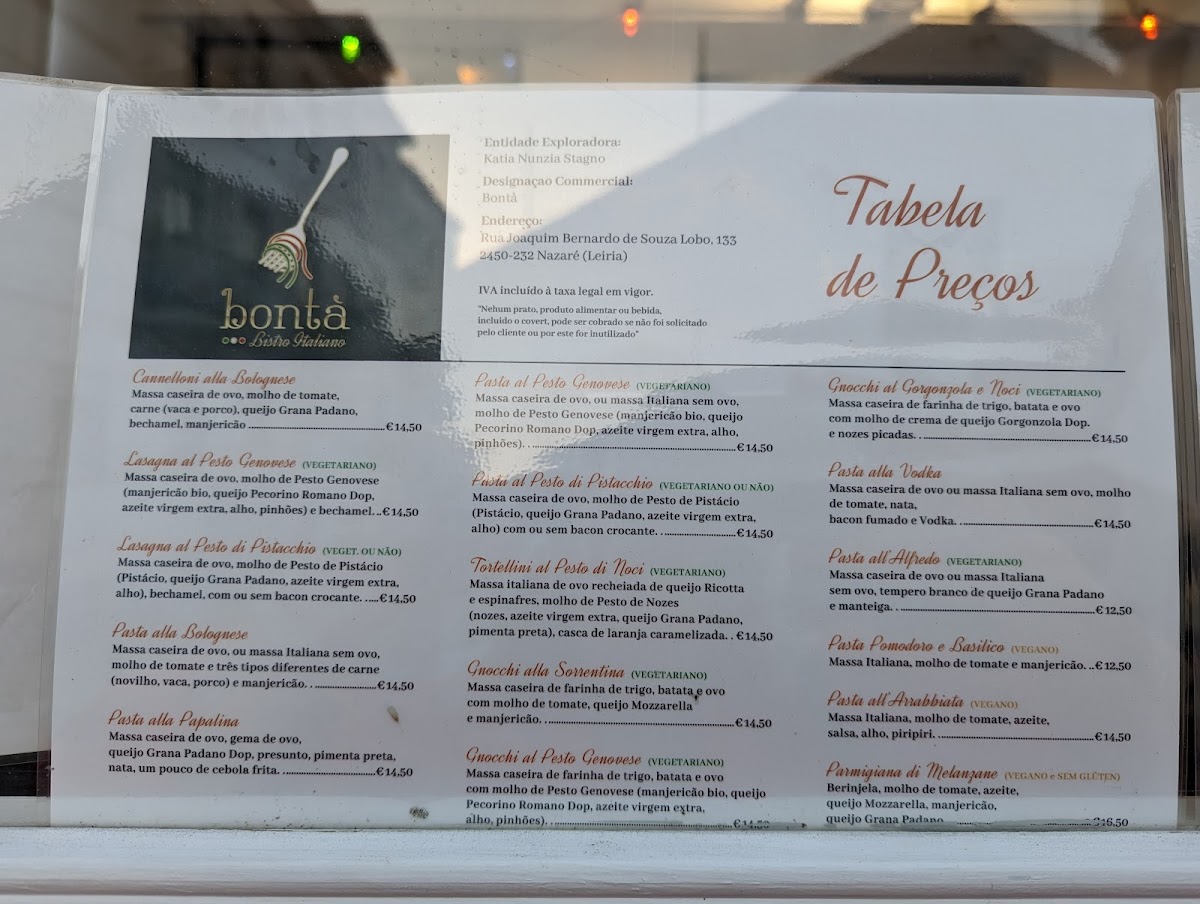 bontà
Bistro Italiano
Entidade Exploradora:
Katia Nunzia Stagno
Designaçao Commercial:
Bontà
Endereço:
Rua Joaquim Bernardo de Souza Lobo, 133
2450-232 Nazaré (Leiria)
IVA incluído à taxa legal em vigor.
"Nehum prato, produto alimentar ou bebida,
incluido o covert, pode ser cobrado se não foi solicitado
pelo cliente ou por este for inutilizado"
Tabela
de Preços
Cannelloni alla Bolognese
Massa caseira de ovo, molho de tomate,
carne (vaca e porco), queijo Grana Padano,
bechamel, manjericão ........ €14,50
Lasagna al Pesto Genovese (VEGETARIANO)
Massa caseira de ovo, molho de Pesto Genovese
(manjericão bio, queijo Pecorino Romano Dop,
azeite virgem extra, alho, pinhões) e bechamel. ..€14,50
Lasagna al Pesto di Pistacchio (VEGET. OU NÃO)
Massa caseira de ovo, molho de Pesto de Pistácio
(Pistácio, queijo Grana Padano, azeite virgem extra,
alho), bechamel, com ou sem bacon crocante. .....€14,50
Pasta alla Bolognese
Massa caseira de ovo, ou massa Italiana sem ovo,
molho de tomate e três tipos diferentes de carne
(novilho, vaca, porco) e manjericão. ........€14,50
Pasta alla Papalina
Massa caseira de ovo, gema de ovo,
queijo Grana Padano Dop, presunto, pimenta preta,
nata, um pouco de cebola frita. ........€14,50
Pasta al Pesto Genovese (VEGETARIANO)
Massa caseira de ovo, ou massa Italiana sem ovo,
molho de Pesto Genovese (manjericão bio, queijo
Pecorino Romano Dop, azeite virgem extra, alho,
pinhões). ........€14,50
Pasta al Pesto di Pistacchio (VEGETARIANO OU NÃO)
Massa caseira de ovo, molho de Pesto de Pistácio
(Pistácio, queijo Grana Padano, azeite virgem extra,
alho) com ou sem bacon crocante. ........€14,50
Tortellini al Pesto di Noci (VEGETARIANO)
Massa italiana de ovo recheiada de queijo Ricotta
e espinafres, molho de Pesto de Nozes
(nozes, azeite virgem extra, queijo Grana Padano,
pimenta preta), casca de laranja caramelizada. . €14,50
Gnocchi alla Sorrentina (VEGETARIANO)
Massa caseira de farinha de trigo, batata e ovo
com molho de tomate, queijo Mozzarella
e manjericão. ........€14,50
Gnocchi al Pesto Genovese (VEGETARIANO)
Massa caseira de farinha de trigo, batata e ovo
com molho de Pesto Genovese (manjericão bio, queijo
Pecorino Romano Dop, azeite virgem extra,
alho, pinhões). ........€14,50
Gnocchi al Gorgonzola e Noci (VEGETARIANO)
Massa caseira de farinha de trigo, batata e ovo
com molho de crema de queijo Gorgonzola Dop.
e nozes picadas. ........€14,50
Pasta alla Vodka
Massa caseira de ovo ou massa Italiana sem ovo, molho
de tomate, nata,
bacon fumado e Vodka. ........€14,50
Pasta all'Alfredo (VEGETARIANO)
Massa caseira de ovo ou massa Italiana
sem ovo, tempero branco de queijo Grana Padano
e manteiga. ........€12,50
Pasta Pomodoro e Basilico (VEGANO)
Massa Italiana, molho de tomate e manjericão. ..€12,50
Pasta all'Arrabbiata (VEGANO)
Massa Italiana, molho de tomate, azeite,
salsa, alho, piripiri. ........€14,50
Parmigiana di Melanzane (VEGANO e SEM GLÚTEN)
Berinjela, molho de tomate, azeite,
queijo Mozzarella, manjericão,
queijo Grana Padano ........€16,50